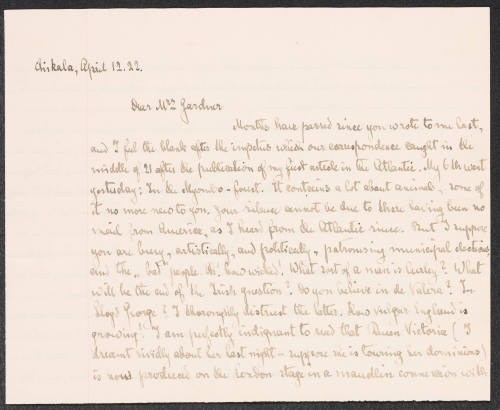 Aiskala, April 12. 22.
Dear Mrs Gardner
Months have passed since you wrote to me last,
and I feel the blank after the impetus which our correspondence caught in the
middle of 21 after the publication of my first article in the Atlantic. My 6th went
yesterday: In the Myombo-forest. It contains a lot about animals, some of
it no more new to you. Your silence cannot be due to there having been no
mail from America, as I hear from the Atlantic since. But I suppose
you are busy, artistically, and politically, patronising municipal elections,
and the "bad" people. Oh! how wicked! What sort of a man is Curley? What
will be the end of the Irish question? Do you believe in de Valera? In
Lloyd George? I thoroughly distrust the latter. How vulgar England is
growing! I am perfectly indignant to read that Queen Victoria (I
dreamt vividly about her last night - suppose she is touring her dominions)
is now produced on the London stage in a maudlin connexion with